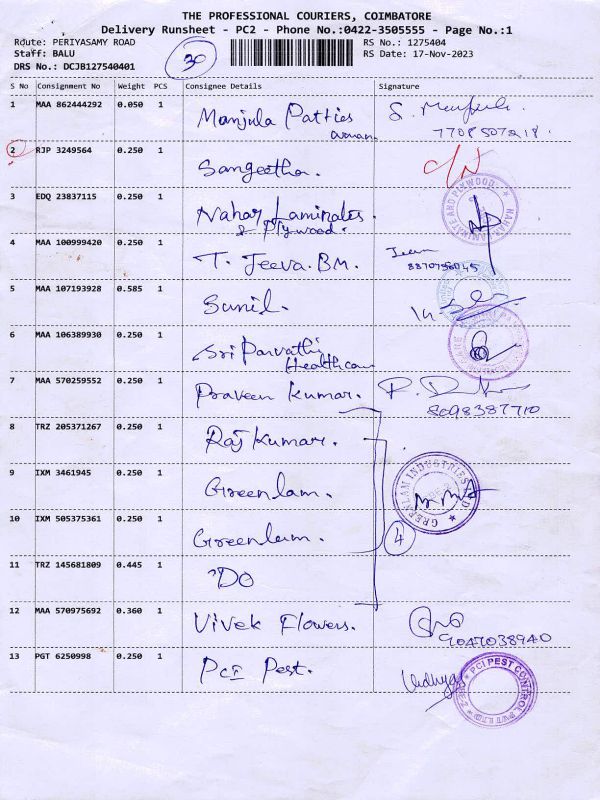 THE PROFESSIONAL COURIERS, COIMBATORE
Delivery Runsheet - PC2 - Phone No.:0422-3505555 - Page No.:1
Route: PERIYASAMY ROAD RS No.: 1275404
Staff: BALU RS Date: 17-Nov-2023
DRS No.: DCJB127540401
30
S No Consignment No Weight PCS Consignee Details Signature
1 MAA 862444292 0.050 1 Manjula Patties
7708507218.
2 RJP 3249564 0.250 1 Sangeetha.
3 EDQ 23837115 0.250 1 Nahar Laminates.
& Plywood.
NAHAR LAMINATE AND PLYWOOD
4 MAA 100999420 0.250 1 T. Jeeva.BM.
5 MAA 107193928 0.585 1 Sunil.
6 MAA 106389930 0.250 1 Sri Parvathi
Healthcare
7 MAA 570259552 0.250 1 Praveen Kumar.
8098387710
8 TRZ 205371267 0.250 1 Raj Kumar.
9 IXM 3461945 0.250 1 Greenlam.
GREENLAM INDUSTRIES LTD
10 IXM 505375361 0.250 1 Greenlam.
4
11 TRZ 145681809 0.445 1 "DO
12 MAA 570975692 0.360 1 Vivek Flowers.
9047038940
13 PGT 6250998 0.250 1 PCI Pest.
Vidhya
PCI PEST CONTROL PVT LTD